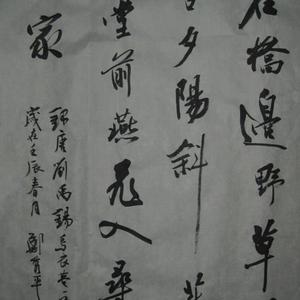 橋邊野草
夕陽斜
堂前燕飛入尋
家
錄唐劉禹錫烏衣巷
歲在壬辰春月 鄭育平